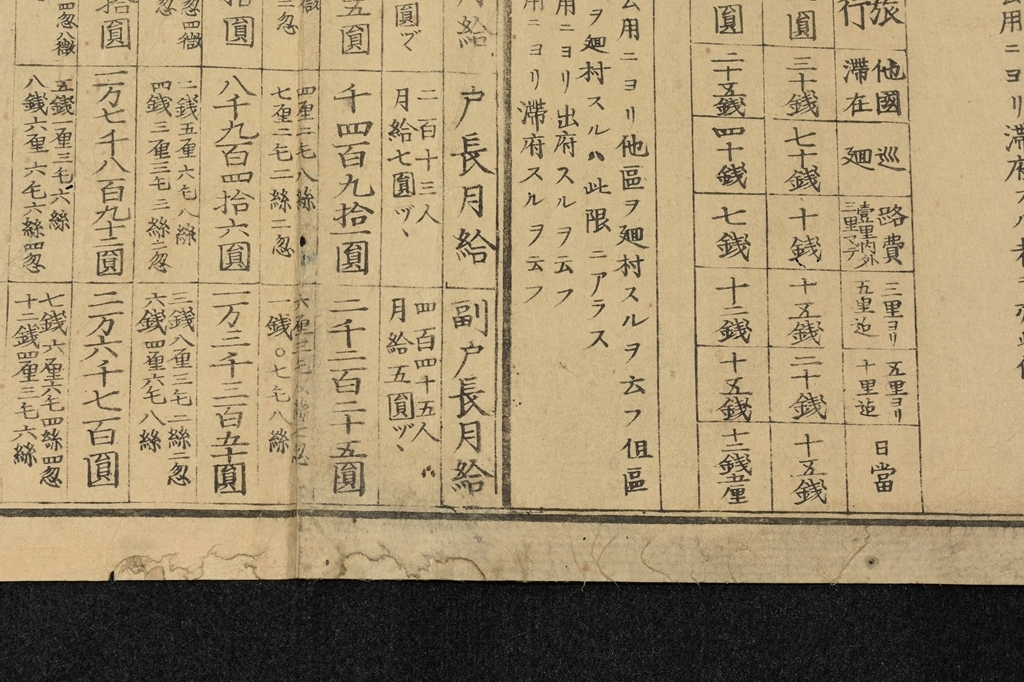 公用ニヨリ滞府
旅行
他國滞在
巡廻
路費 壹里内外三里マデ
三里ヨリ五里迠
五里ヨリ十里迠
日當
圓
三十銭
七十銭
十銭
十五銭
二十銭
十五銭
圓
二十五銭
四十銭
七銭
十二銭
十五銭
十二銭五厘
公用ニヨリ他區ヲ廻村スルヲ云フ但區
ヲ廻村スルハ此限ニアラス
用ニヨリ出府スルヲ云フ
用ニヨリ滞府スルヲ云フ
月給
戸長月給
副戸長月給
圓ヅヽ
二百十三人
月給七圓ヅヽ
四百四十五人
月給五圓ヅヽ
五圓
千四百九拾一圓
二千二百二十五圓
四厘二毛八絲
七厘二毛二絲二忽
一銭〇七毛八絲
拾圓
八千九百四拾六圓
一万三千三百五十圓
四忽四微
二銭五厘六毛八絲
四銭三厘三毛三絲二忽
三銭八厘三毛二絲二忽
六銭四厘六毛八絲
拾圓
一万七千八百九十二圓
二万六千七百圓
四忽八微
五銭一厘三毛六絲
八銭六厘六毛六絲四忽
七銭六厘六毛四絲四忽
十二銭四厘三毛六絲